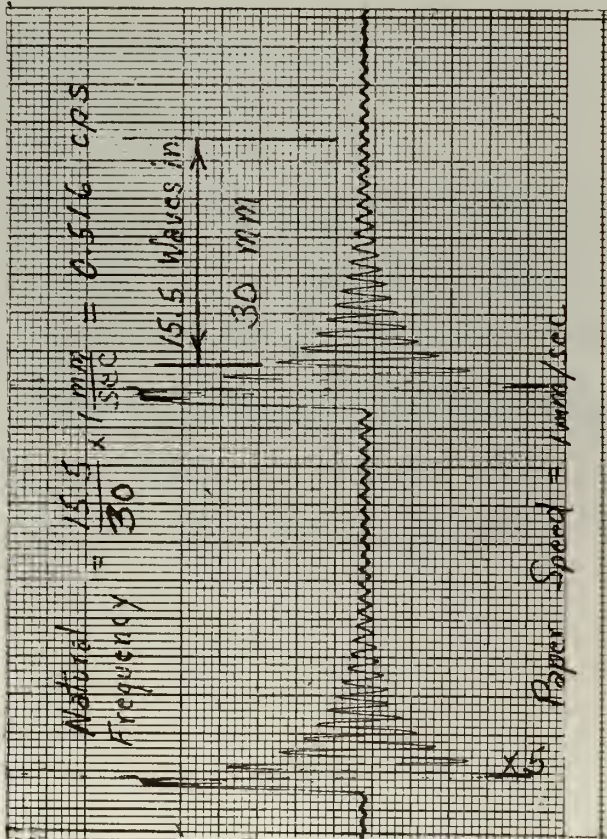 Natural
Frequency = 15.5/30 x 1 mm/sec = 0.516 cps
15.5 Waves in
30 mm
Paper Speed = 1 mm/sec